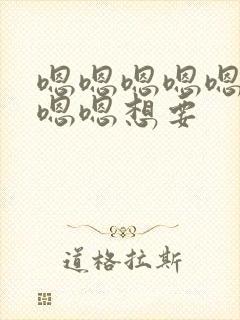 嗯嗯嗯嗯嗯
嗯嗯想要
道格拉斯